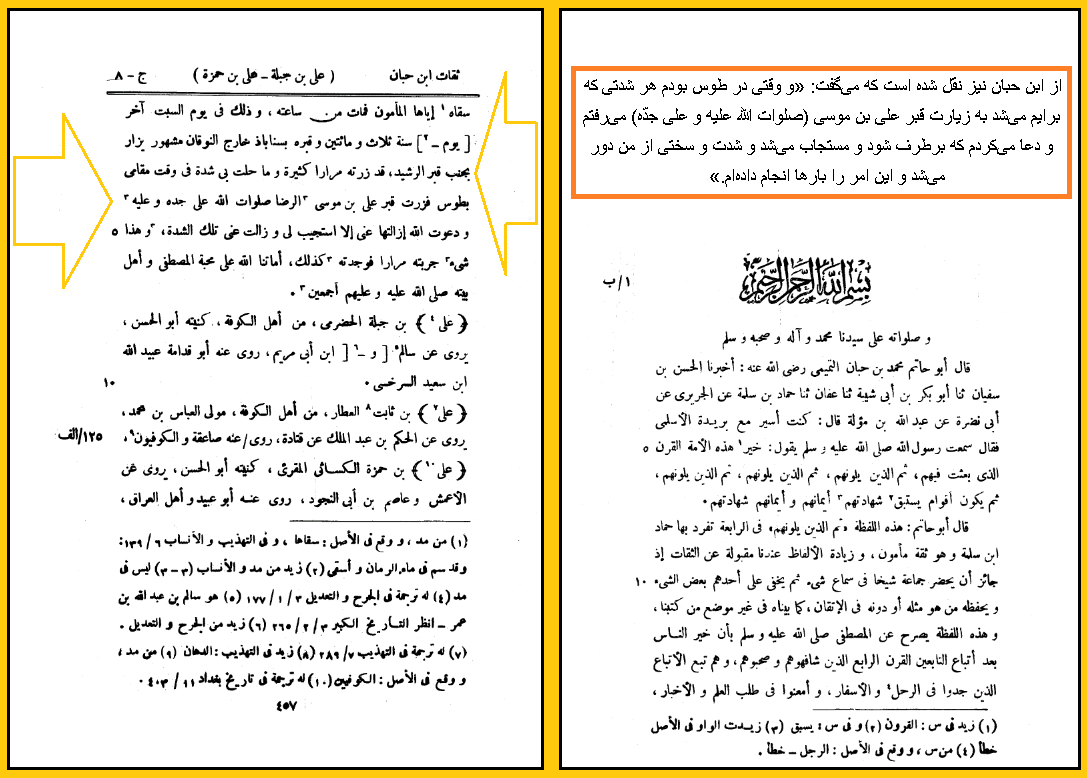 از ابن حبان نیز نقل شده است که می‌گفت: «و وقتی در طوس بودم هر شدتی که
برایم می‌شد به زیارت قبر علی بن موسی (صلوات الله علیه و علی جدّه) می‌رفتم
و دعا می‌کردم که برطرف شود و مستجاب می‌شد و شدت و سختی از من دور
می‌شد و این امر را بارها انجام داده‌ام.»
١/ب
بسم الله الرحمن الرحيم
و صلواته على سيدنا محمد و آله و صحبه و سلم
قال أبو حاتم محمد بن حبان التميمى رضى الله عنه : أخبرنا الحسن بن
سفيان ثنا أبو بكر بن أبى شيبة ثنا عفان ثنا حماد بن سلمة عن الجريرى عن
أبى نضرة عن عبد الله بن مؤلة قال : كنت أسير مع بريدة الأسلمى
فقال سمعت رسول الله صلى الله عليه و سلم يقول : خير١ هذه الأمة القرن ٥
الذى بعثت فيهم ، ثم الذين يلونهم ، ثم الذين يلونهم ، ثم الذين يلونهم ،
ثم يكون أقوام يستبق٢ شهادتهم٣ أيمانهم و أيمانهم شهادتهم .
قال أبو حاتم : هذه اللفظة «ثم الذين يلونهم» فى الرابعة تفرد بها حماد
ابن سلمة و هو ثقة مأمون ، و زيادة الألفاظ عندنا مقبولة عن الثقات إذ
جائز أن يحضر جماعة شيخا فى سماع شىء ثم يخفى على أحدهم بعض الشىء ١٠
و يحفظه من هو مثله أو دونه فى الإتقان ، كما بيناه فى غير موضع من كتبنا ،
و هذه اللفظة يصرح عن المصطفى صلى الله عليه و سلم بأن خير الناس
بعد أتباع التابعين القرن الرابع الذين شافهوهم و صحبوهم ، و هم تبع الأتباع
الذين جدوا فى الرحل٤ و الأسفار ، و أمعنوا فى طلب العلم و الأخبار ،
(١) زيد فى س : القرون (٢) و فى س : يسبق (٣) زيدت الواو فى الأصل
خطأ (٤) من س ، و وقع فى الأصل : الرجل – خطأ .
ثقات ابن حبان ( على بن جبلة – على بن حمزة ) ج – ٨
سقاه١ إياها المأمون فمات من ساعته ، و ذلك فى يوم السبت آخر
[ يوم –٢ ] سنة ثلاث و مائتين و قبره بسناباذ خارج النوقان مشهور يزار
بجنب قبر الرشيد ، قد زرته مرارا كثيرة و ما حلت بى شدة فى وقت مقامى
بطوس فزرت قبر على بن موسى ٣الرضا صلوات الله على جده و عليه٣
و دعوت الله إزالتها عنى إلا استجيب لى و زالت عنى تلك الشدة ، ٣و هذا ٥
شىء٣ جربته مرارا فوجدته ٣كذلك ، أماتنا الله على محبة المصطفى و أهل
بيته صلى الله عليه و عليهم أجمعين٣ .
﴿ على٤ ﴾ بن جبلة الحضرمى ، من أهل الكوفة ، كنيته أبو الحسن ،
يروى عن سالم٥ [ و –٦ ] ابن أبى مريم ، روى عنه أبو قدامة عبيد الله
ابن سعيد السرخسى . ١٠
﴿ على٧ ﴾ بن ثابت٨ العطار ، من أهل الكوفة ، مولى العباس بن محمد ،
يروى عن الحكم بن عبد الملك عن قتادة ، روى/عنه صاعقة و الكوفيون٩ ، ١٢٥/الف
﴿ على١٠ ﴾ بن حمزة الكسائى المقرئ ، كنيته أبو الحسن ، يروى عن
الأعمش و عاصم بن أبى النجود ، روى عنه أبو عبيد و أهل العراق ،
(١) من مد ، و وقع فى الأصل : سقاها ، و فى التهذيب و الأنساب ٦ / ١٣٩ :
وقد سم فى ماء الرمان و أسقى (٢) زيد من مد و الأنساب (٣–٣) ليس فى
مد (٤) له ترجمة فى الجرح و التعديل ٣ / ١ / ١٧٧ (٥) هو سالم بن عبد الله بن
عمر – انظر التأريخ الكبير ٣ / ٢ / ٢٦٥ (٦) زيد من الجرح و التعديل .
(٧) له ترجمة فى التهذيب ٧ / ٢٨٩ (٨) زيد فى التهذيب : الدهان (٩) من مد ،
و وقع فى الأصل : الكوفيين (١٠) له ترجمة فى تاريخ بغداد ١١ / ٤٠٣ .
٤٥٧